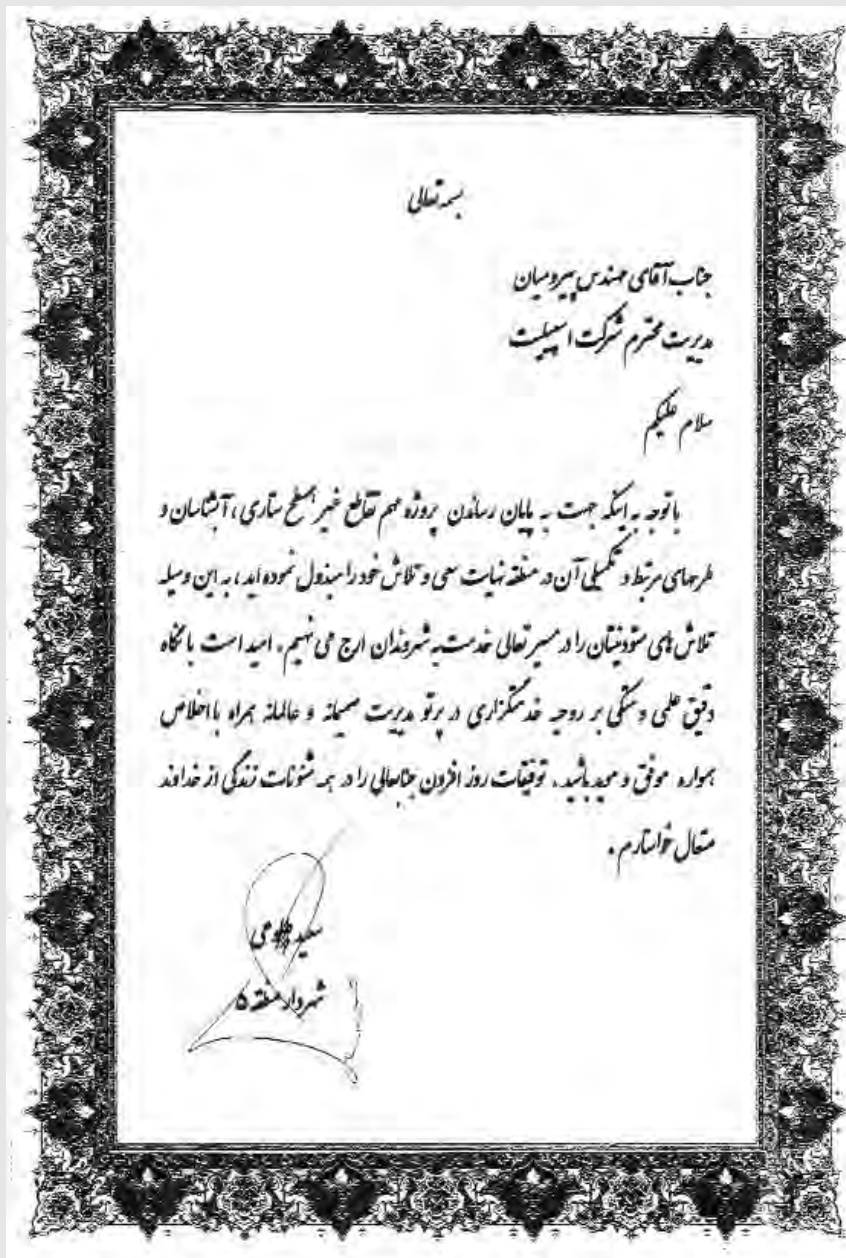 بسمه تعالی
جناب آقای مهندس پیرومیان
مدیریت محترم شرکت اسپلیت
سلام علیکم
باتوجه به اینکه جهت به پایان رساندن پروژه مهم تقاطع غیر همسطح ستاری، آبشناسان و
طرحهای مرتبط و تکمیلی آن در منطقه نهایت سعی و تلاش خود را مبذول نموده اید، به این وسیله
تلاش های ستودنیتان را در مسیر تعالی خدمت به شهروندان ارج می نهیم. امید است با نگاه
دقیق علمی و متکی بر روحیه خدمتگزاری در پرتو مدیریت صمیمانه و عالمانه همراه با اخلاص
همواره موفق و موید باشید. توفیقات روز افزون جنابعالی را در همه شئونات زندگی از خداوند
متعال خواستارم.
سعید
شهردار منطقه ۵